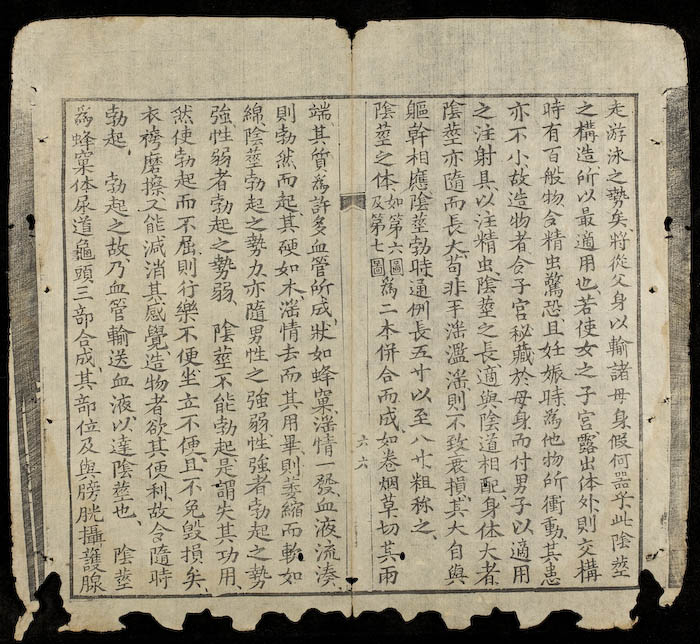 走游泳之勢矣、將從父身以輸諸母身、假何器乎、此陰莖
之構造所以最適用也、若使女之子宮露出体外、則交構
時有百般物含精虫、驚恐且妊娠時、為他物所衝動、其患
亦不小、故造物者合子宮秘藏於母身、而付男子以適用
之注射具、以注精虫、陰莖之長適與陰道相配、身体大者、
陰莖亦隨而長大、苟非手淫濫淫則不致衰損、其大自與
軀幹相應、陰莖勃時通例長五寸以至八寸、粗称之、
陰莖之体、如第六圖及第七圖為二本併合而成、如卷烟草切其兩
六六
端其質為許多血管所成、狀如蜂窠、淫情一發、血液流湊、
則勃然而起、其硬如木、淫情去而其用畢、則萎縮而軟如
綿、陰莖勃起之勢力、亦隨男性之強弱、性強者勃起之勢
強、性弱者勃起之勢弱、陰莖不能勃起、是謂失其功用、
然使勃起而不屈、則行樂不便、坐立不便、且不免毀損矣、
衣袴磨擦、又能減消其感覺、造物者欲其便利、故令隨時
勃起、勃起之故、乃血管輸送血液以達陰莖也、陰莖
為蜂窠体尿道龜頭三部合成、其部位及與膀胱攝護腺